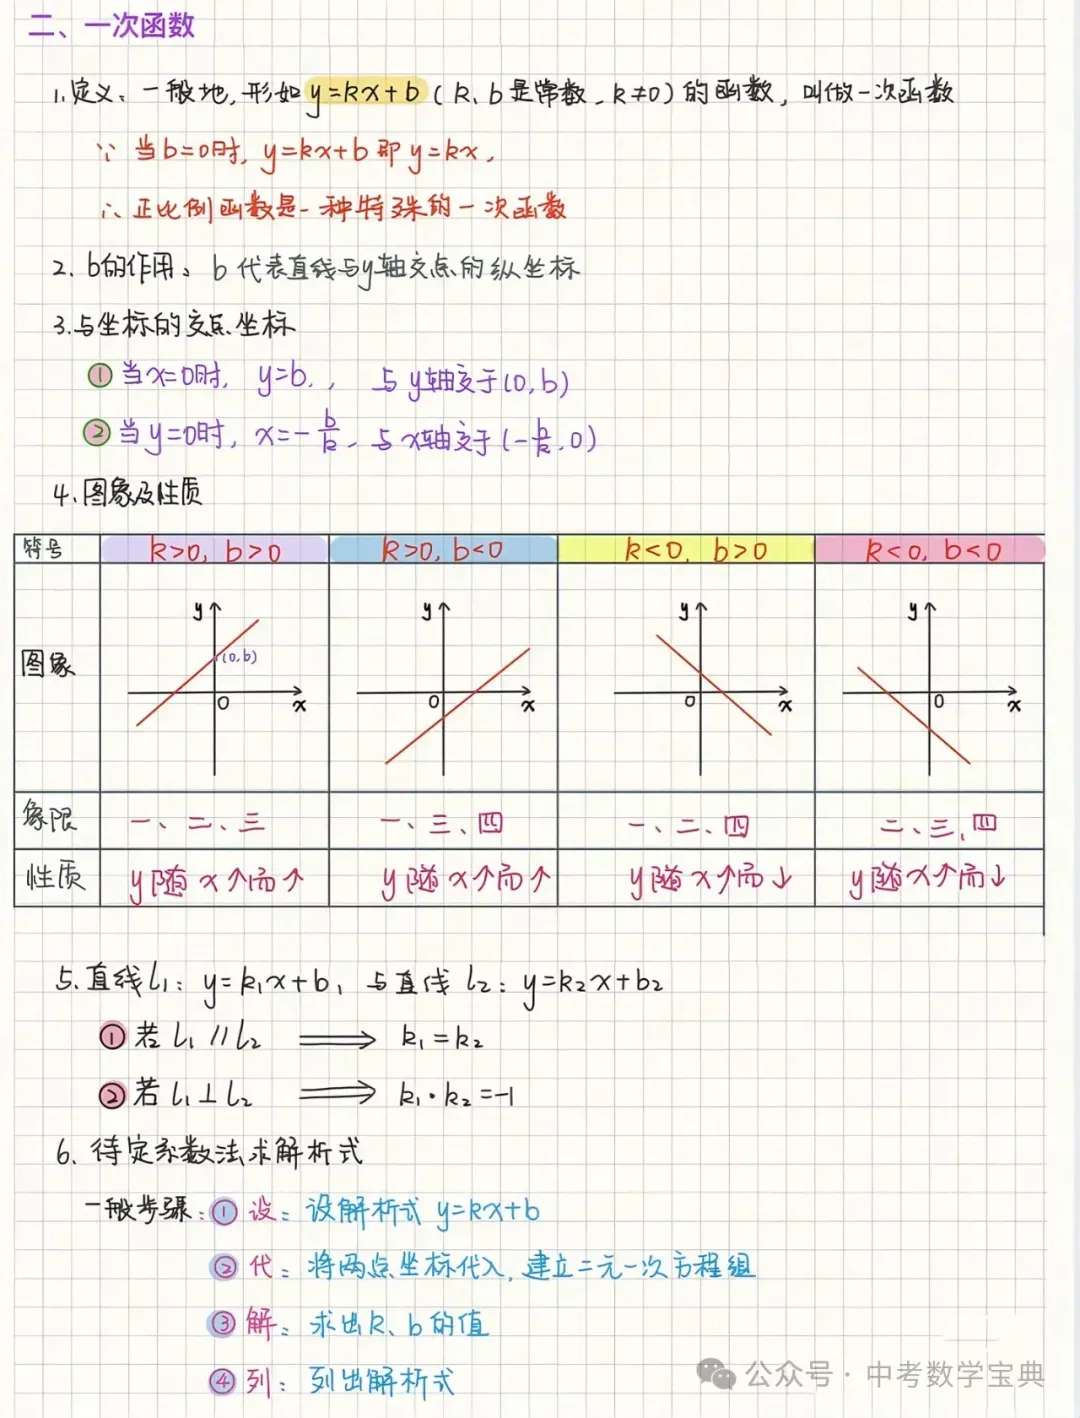 二、一次函数
1.定义：一般地,形如 y=kx+b (k、b是常数,k≠0)的函数,叫做一次函数
∵ 当b=0时, y=kx+b 即 y=kx,
∴ 正比例函数是一种特殊的一次函数
2. b的作用：b 代表直线与y轴交点的纵坐标
3.与坐标的交点坐标
① 当x=0时, y=b, 与y轴交于(0,b)
② 当y=0时, x=-b/k, 与x轴交于(-b/k,0)
4.图象及性质
符号 k>0, b>0 k>0, b<0 k<0, b>0 k<0, b<0
图象
y (0,b) O x
y O x
y O x
y O x
象限 一、二、三 一、三、四 一、二、四 二、三、四
性质 y随x↑而↑ y随x↑而↑ y随x↑而↓ y随x↑而↓
5.直线l₁: y=k₁x+b₁ 与直线 l₂: y=k₂x+b₂
① 若 l₁∥l₂ ⟹ k₁=k₂
② 若 l₁⊥l₂ ⟹ k₁·k₂=-1
6. 待定系数法求解析式
一般步骤: ① 设: 设解析式 y=kx+b
② 代: 将两点坐标代入,建立二元一次方程组
③ 解: 求出k、b的值
④ 列: 列出解析式
公众号·中考数学宝典